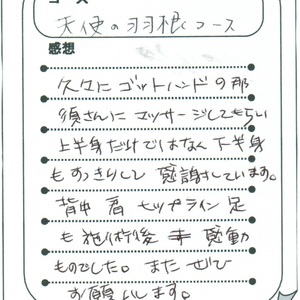 コース
天使の羽根コース
感想
久々にゴットハンドの那
須さんにマッサージしてもらい
上半身だけではなく下半身
もすっきりして感謝しています。
背中 肩 ヒップライン 足
も施術後 感動
ものでした。またぜひ
お願いします。